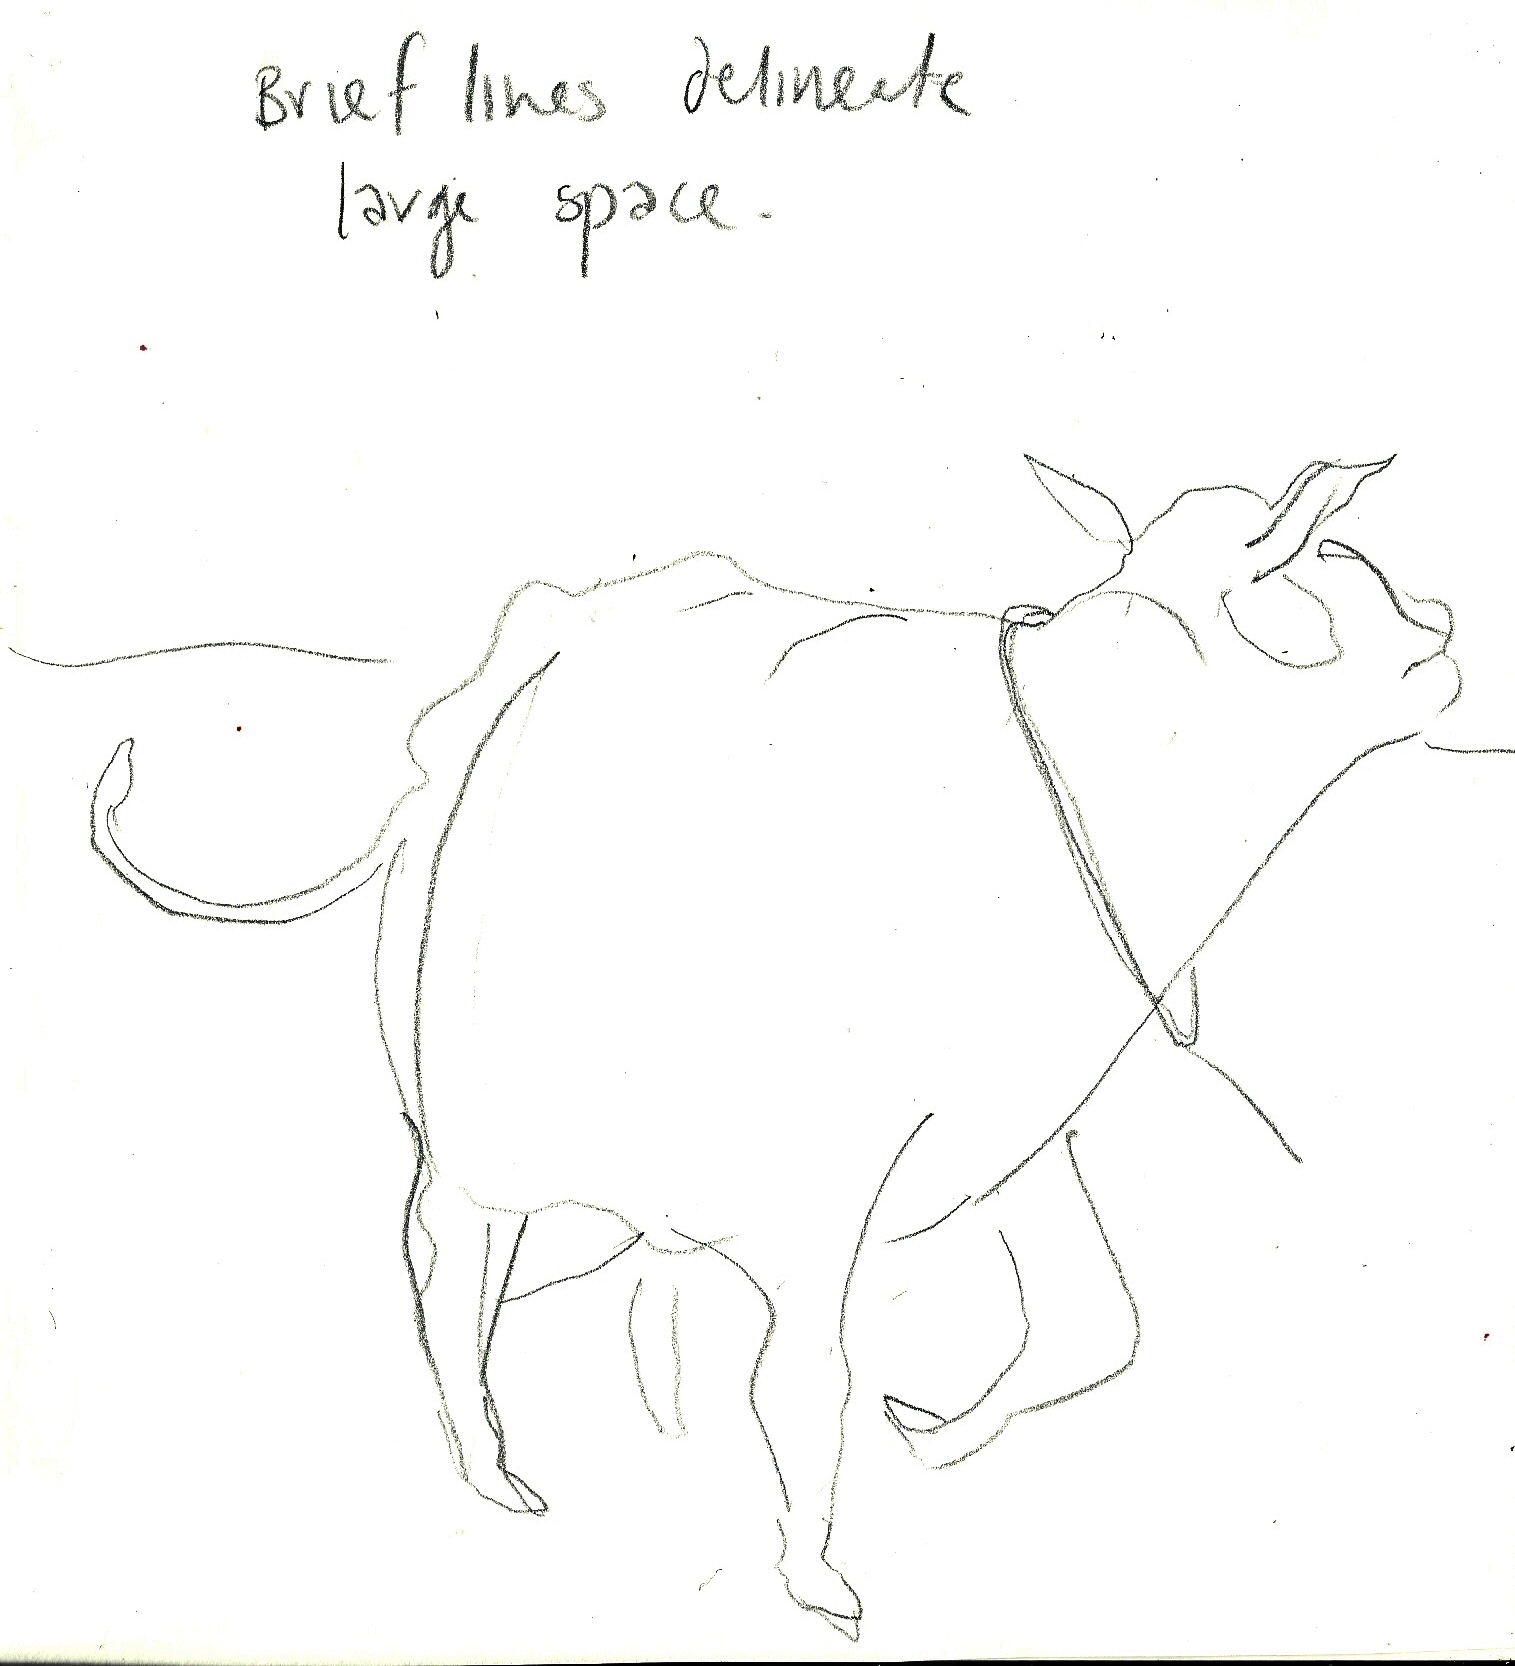 Brief lines delineate
large space.